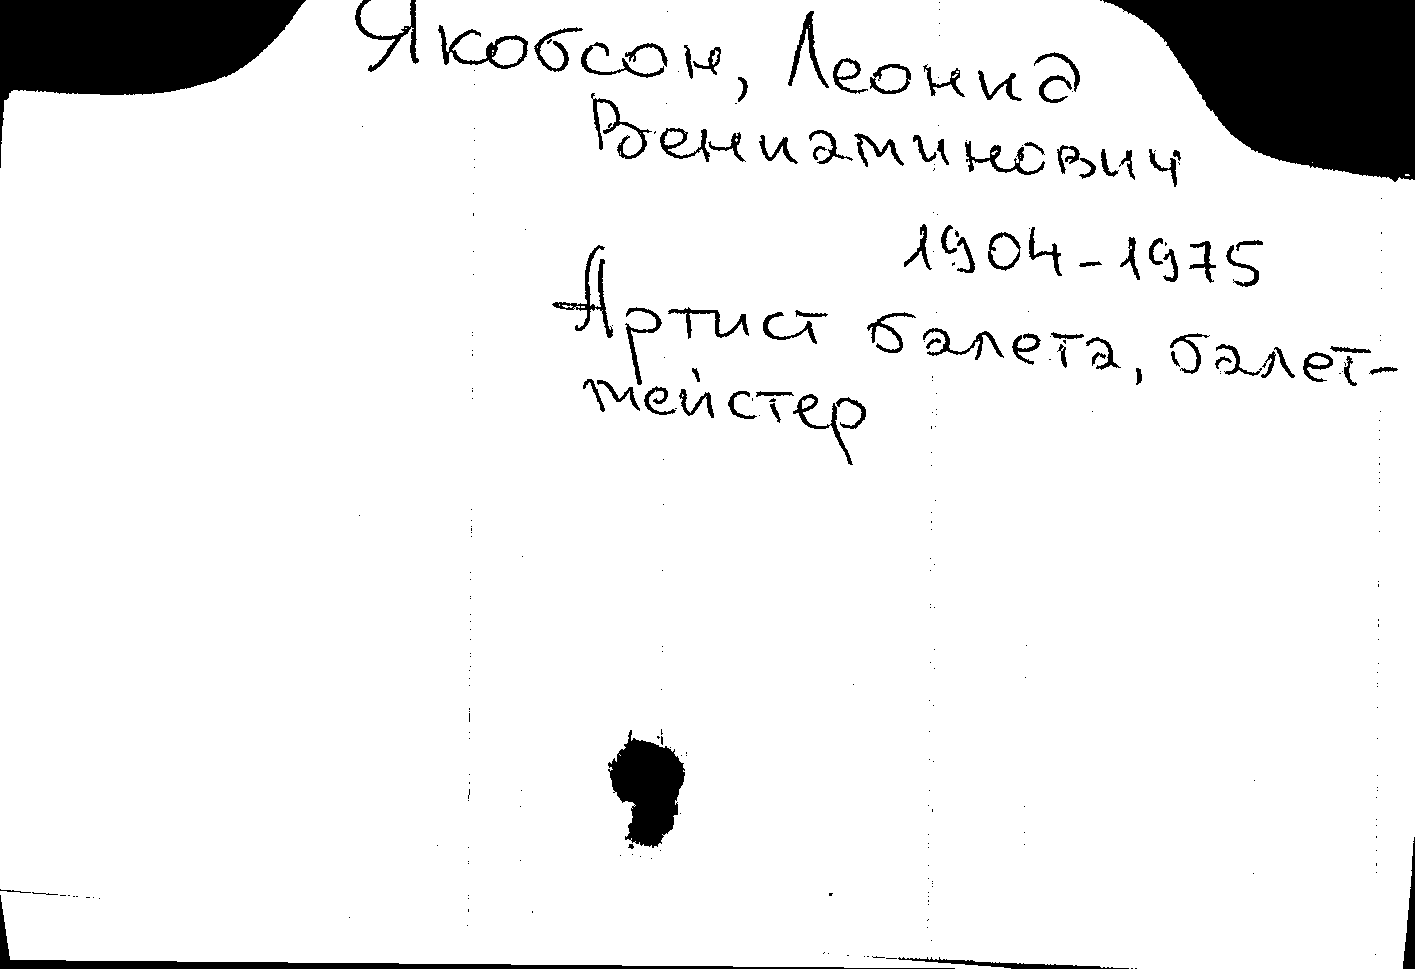 Якобсон, Леонид
Вениаминович
1904-1975
Артист балета, балет-
мейстер